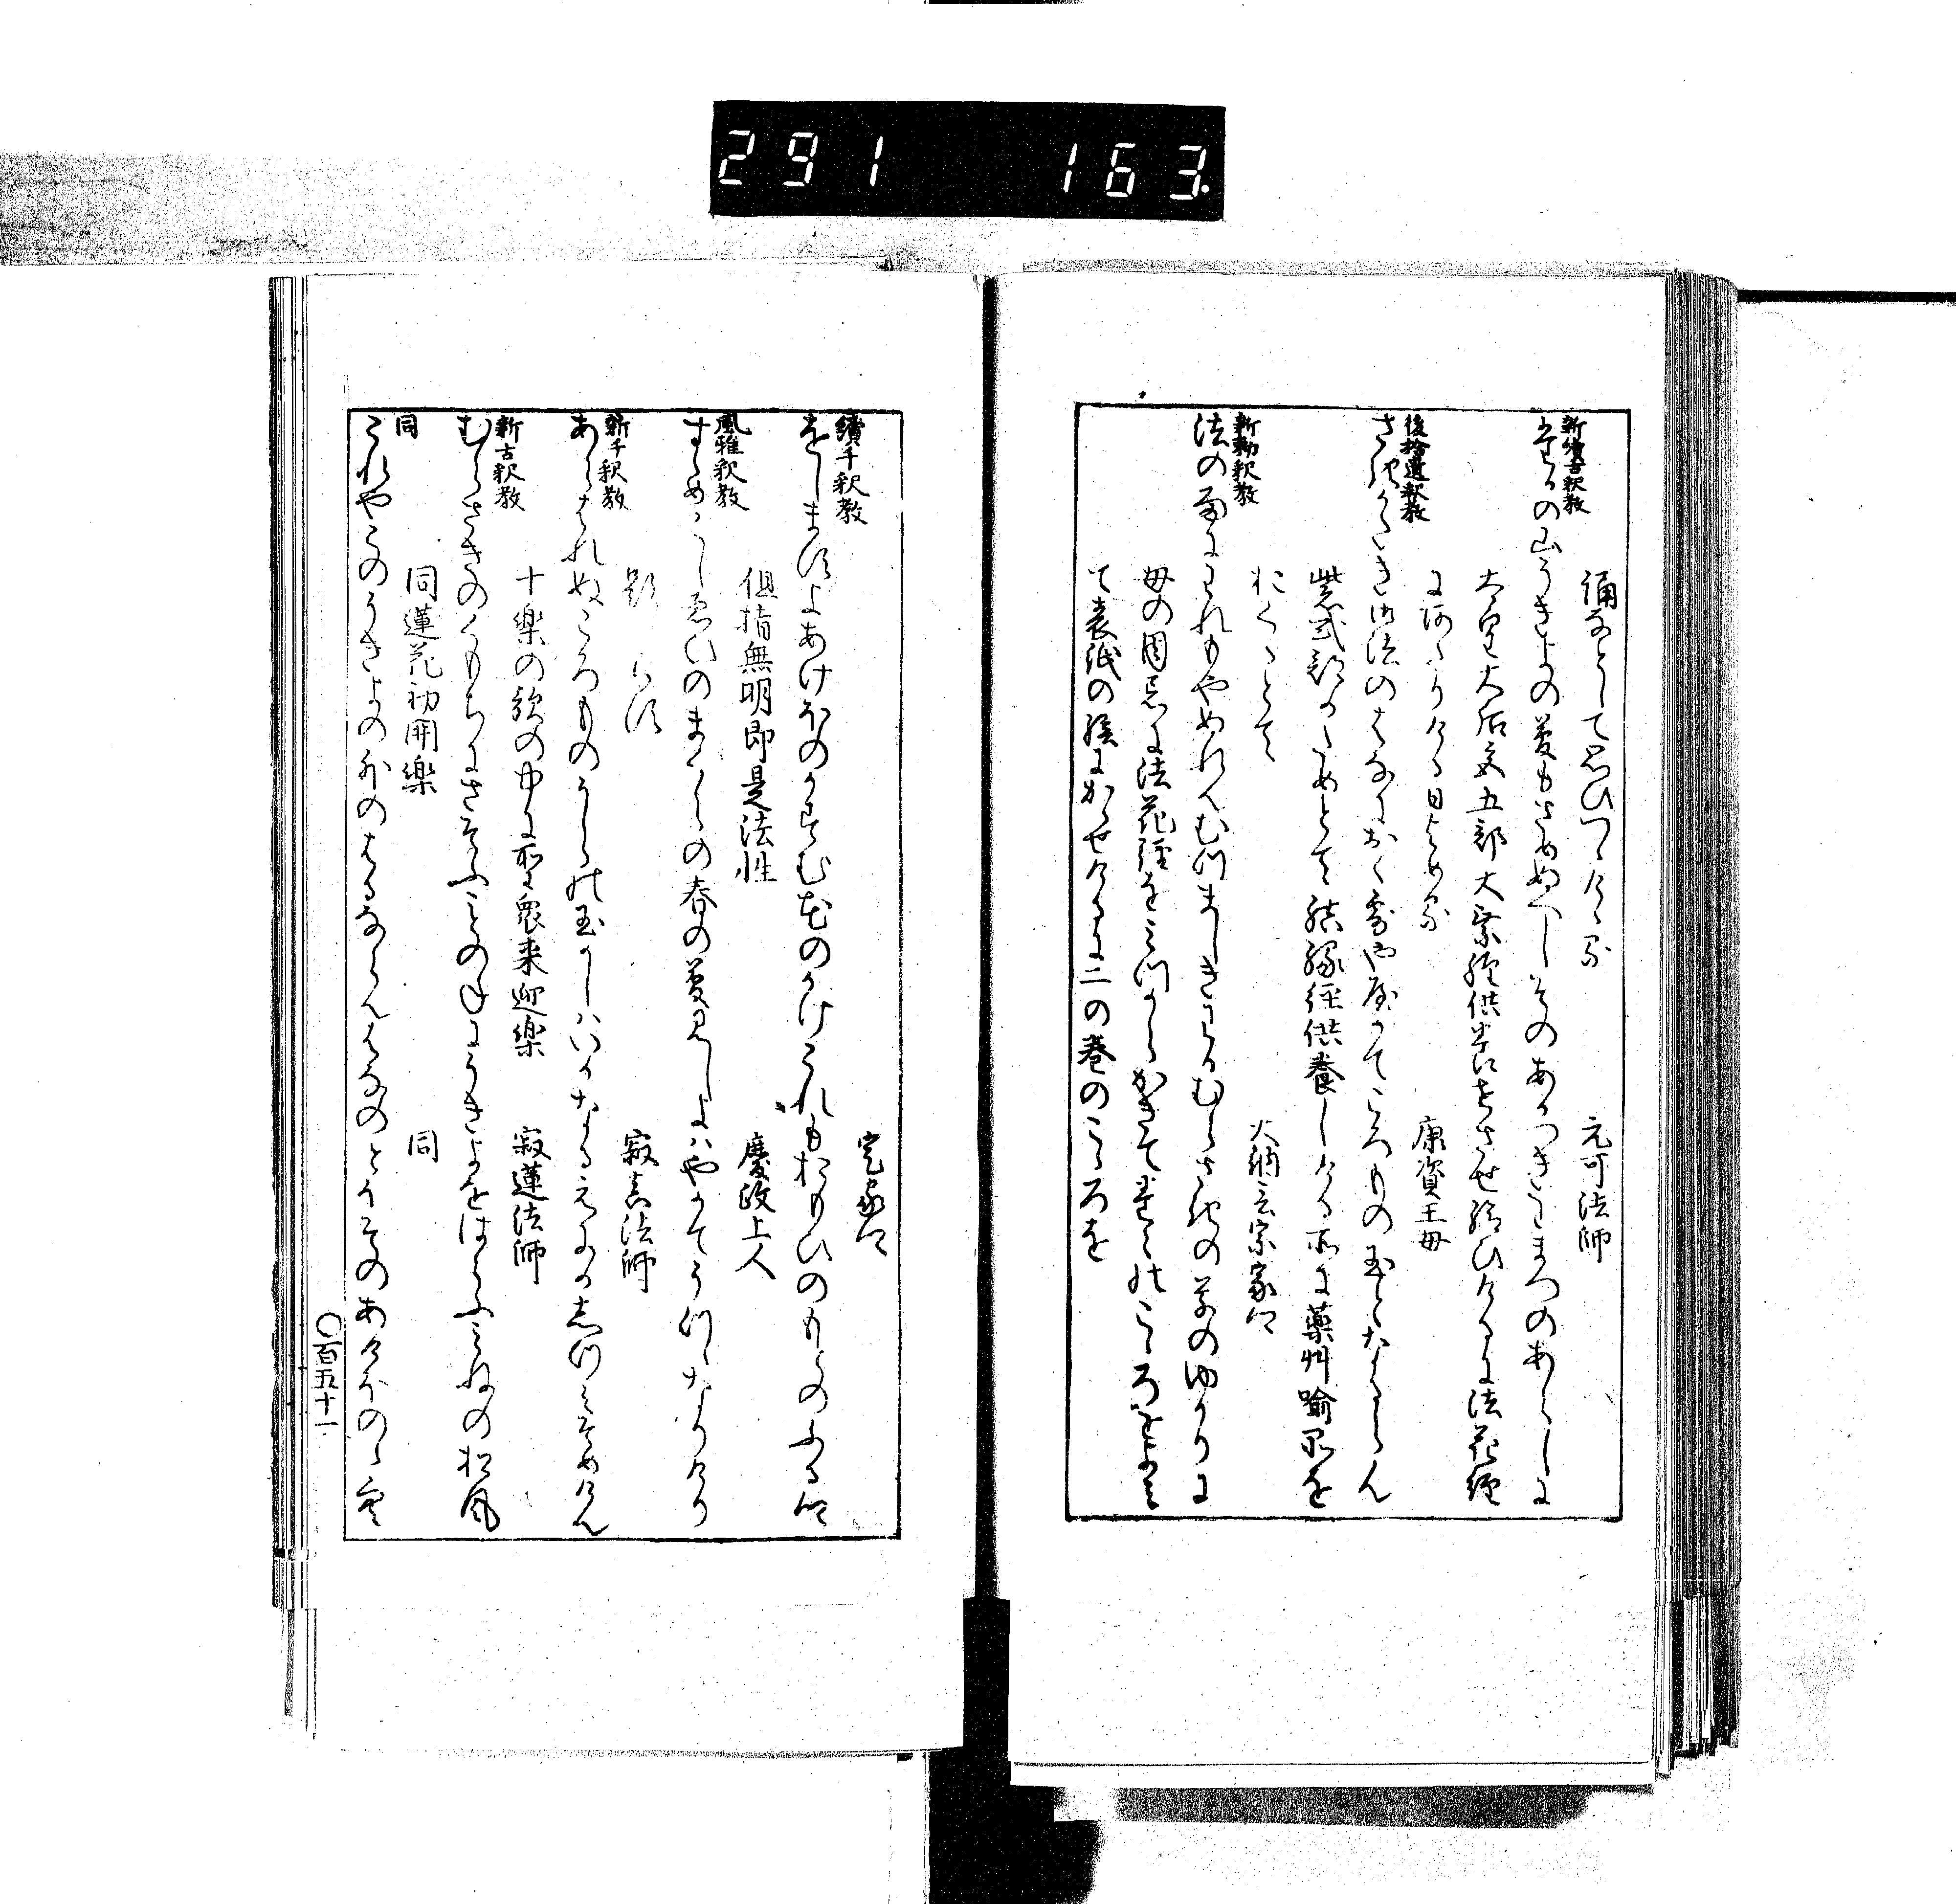 291 163.
誦なとして思ひつゝけゝる
元可法師
新續古釈教
たかの山うきよの夢もさめぬへしそのあかつきをまつのあらしに
太皇大后宮五部大乗経供養せさせ給ひけるに法花経
にあたりける日よめる
康資王母
後拾遺釈教
さきかたき御法のはなにおく露ややかてころものたまとなるらん
紫式部のためとて結縁経供養しける所に薬艸喩品を
おくるとて
大納言宗家卿
新勅釈教
法の雨にわれもやぬれんむつましきわかむらさきの草のゆかりに
母の周忌に法花経をみつからかきて
て表紙の絵にかゝせけるに二の巻のこゝろを
定家卿
續千釈教
をしますよあけほのかすむ花のかけこれもおもひのもとのふる郷
但指無明即是法性
慶政上人
風雅釈教
すゝめこしゑひのまくらの春の夢見しよはやかてうつゝなりけり
題しらす
寂真法師
新千釈教
あらはれぬころものうらの玉かしはいかなるえにかしつみそめけん
十楽の歌の中に聖衆来迎楽
寂蓮法師
新古釈教
むらさきのくもちにさそふことのねにうきよをはらふみねの松風
同蓮花初開楽
同
同
これやこのうきよの外のはるならんはなのとほそのあけほのゝ空
〇百五十一